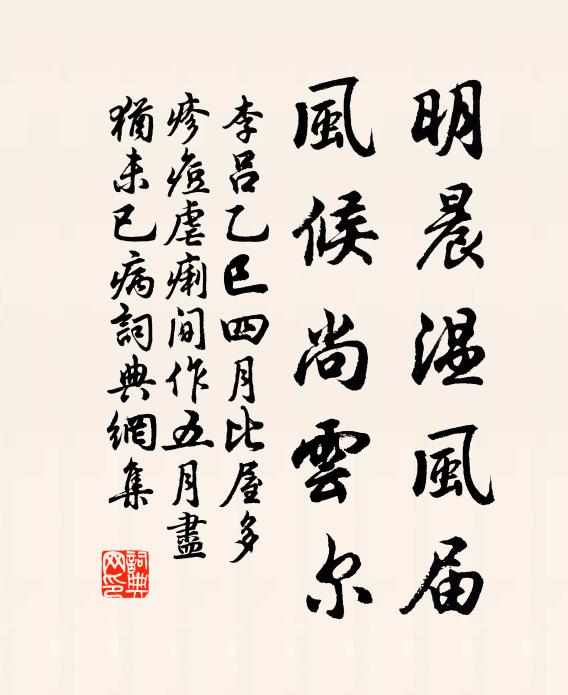 明晨温風届
風候尚雲尔
李吕乙巳四月比屋多
疹痘虐痢间作五月盡
猶未已病詞典網集
詞典
网印